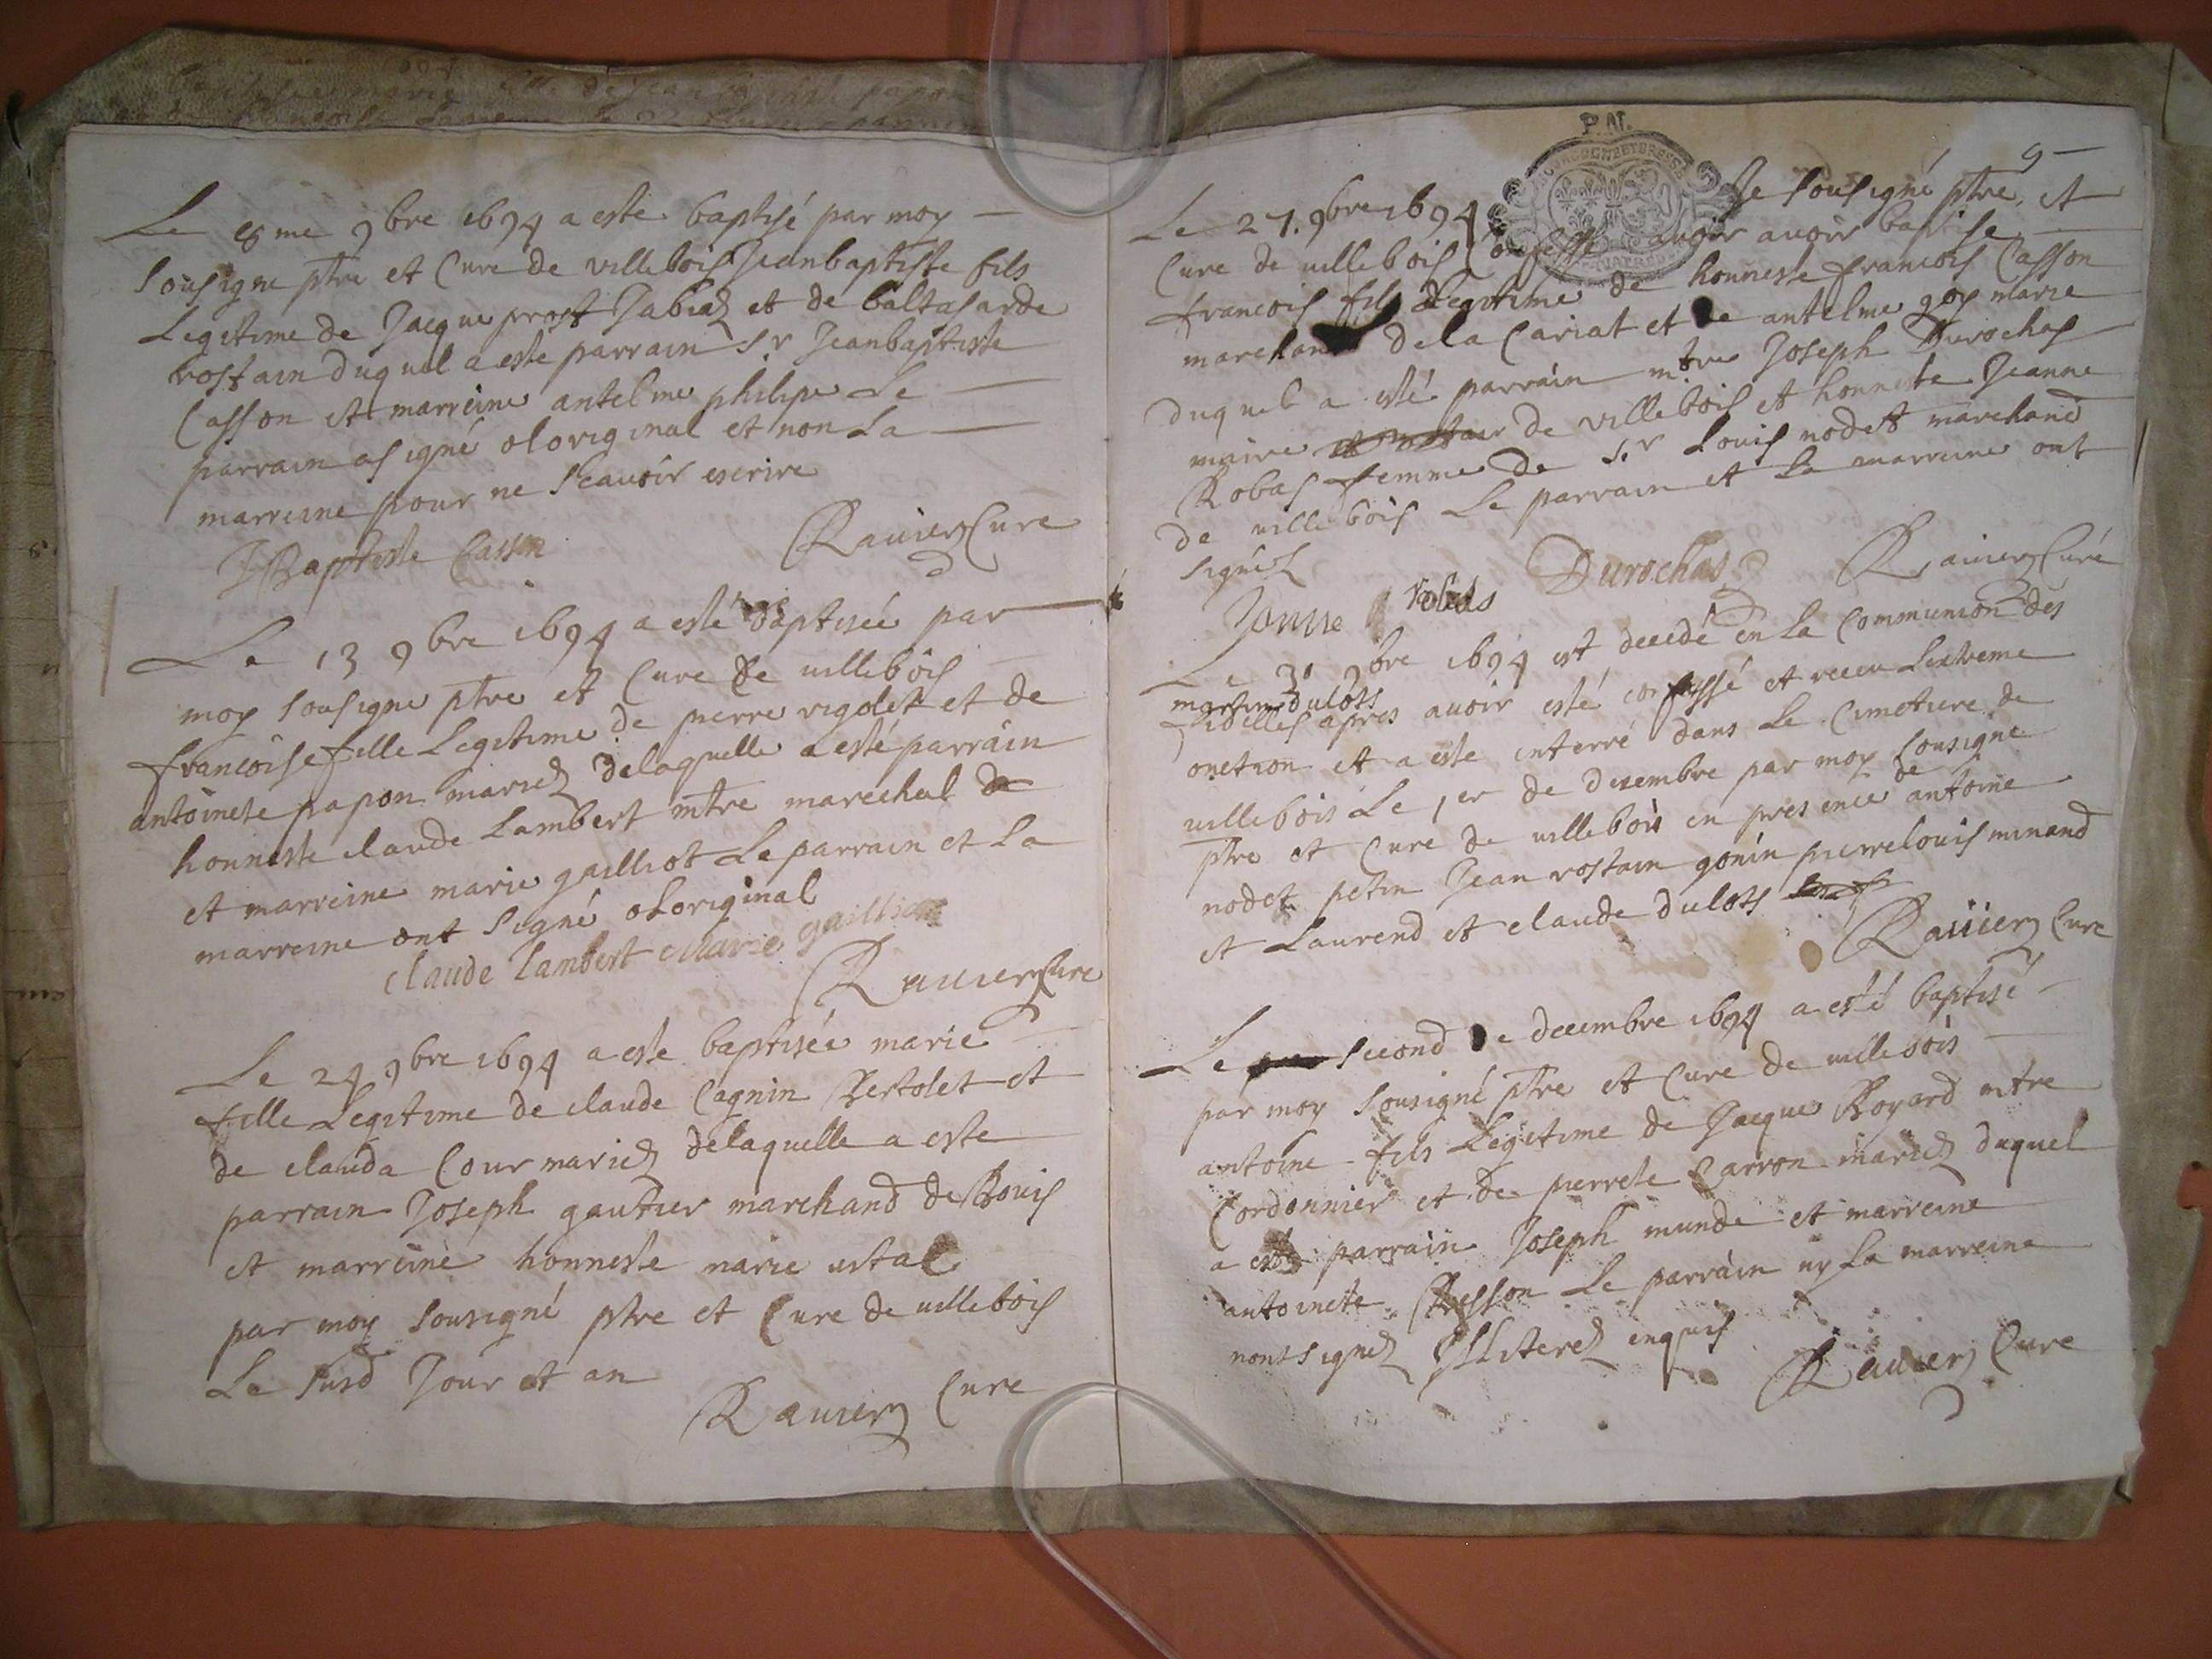 Le 8me 9bre 1694 a este baptisé par moy
sousigne ptre et Cure de villebois Jeanbaptiste fils
Legitime de Jacque prost Jabiaz et de baltasarde
rostain duquel a este parrain Sr Jeanbaptiste
Casson et marreine antelme philipe Le
parrain a signé oloriginal et non La
marreine pour ne Scauoir escrire
JBaptiste Casson Rauier Cure
Le 13 9bre 1694 a esté baptisée par
moy sousigne ptre et Cure de uillebois
francoise fille Legitime de pierre rigolet et de
antoinete papon mariez delaquelle a esté parrain
honneste claude Lambert mtre marechal
et marreine marie gailliot Le parrain et La
marreine ont Signé oloriginal
claude lambert Marie gailliot
Rauier Cure
Le 24 9bre 1694 a este baptisée marie
fille Legitime de claude Cagnin Bertolet et
de clauda Cour mariez delaquelle a este
parrain Joseph gautier marchand de Bouis
et marreine honneste marie
par moy Sousigné ptre et Cure de uillebois
Le susd Jour et an
Rauier Cure
9
Le 27. 9bre 1694 Je sousigné ptre, et
Cure de uillebois Confesse auoir auoir baptise
francois fils Legitime de honneste francois Casson
marchand dela Cariat et de antelme goy marie
duquel a esté parrain mtre Joseph Durochas
maire et notair de villebois et honneste Jeanne
Robas femme de Sr Louis nodet marchand
de uillebois Le parrain et La marreine ont
signéz
Janne Robas Durochas Rauier Curé
Le 30 9bre 1694 est decedé en La Communion des
martin dulots
fidelles apres auoir esté confessé et receu Lextreme
onction et a este interré dans Le Cimetiere de
uillebois Le 1er de decembre par moy sousigne
ptre et Cure de uillebois en presence de antoine
nodet petin Jean rostain gonin pierrelouis minand
et Laurend et claude dulots
Rauier Cure
Le second de decembre 1694 a esté baptisé
par moy Sousigné ptre et Cure de uillebois
antoine fils Legitime de Jacque Boyard mtre
Cordonnier et de pierrete Carron mariez duquel
a esté parrain Joseph munde et marreine
antoinete Besson Le parrain ny La marreine
nont signez Illiterez enquis
Rauier Cure